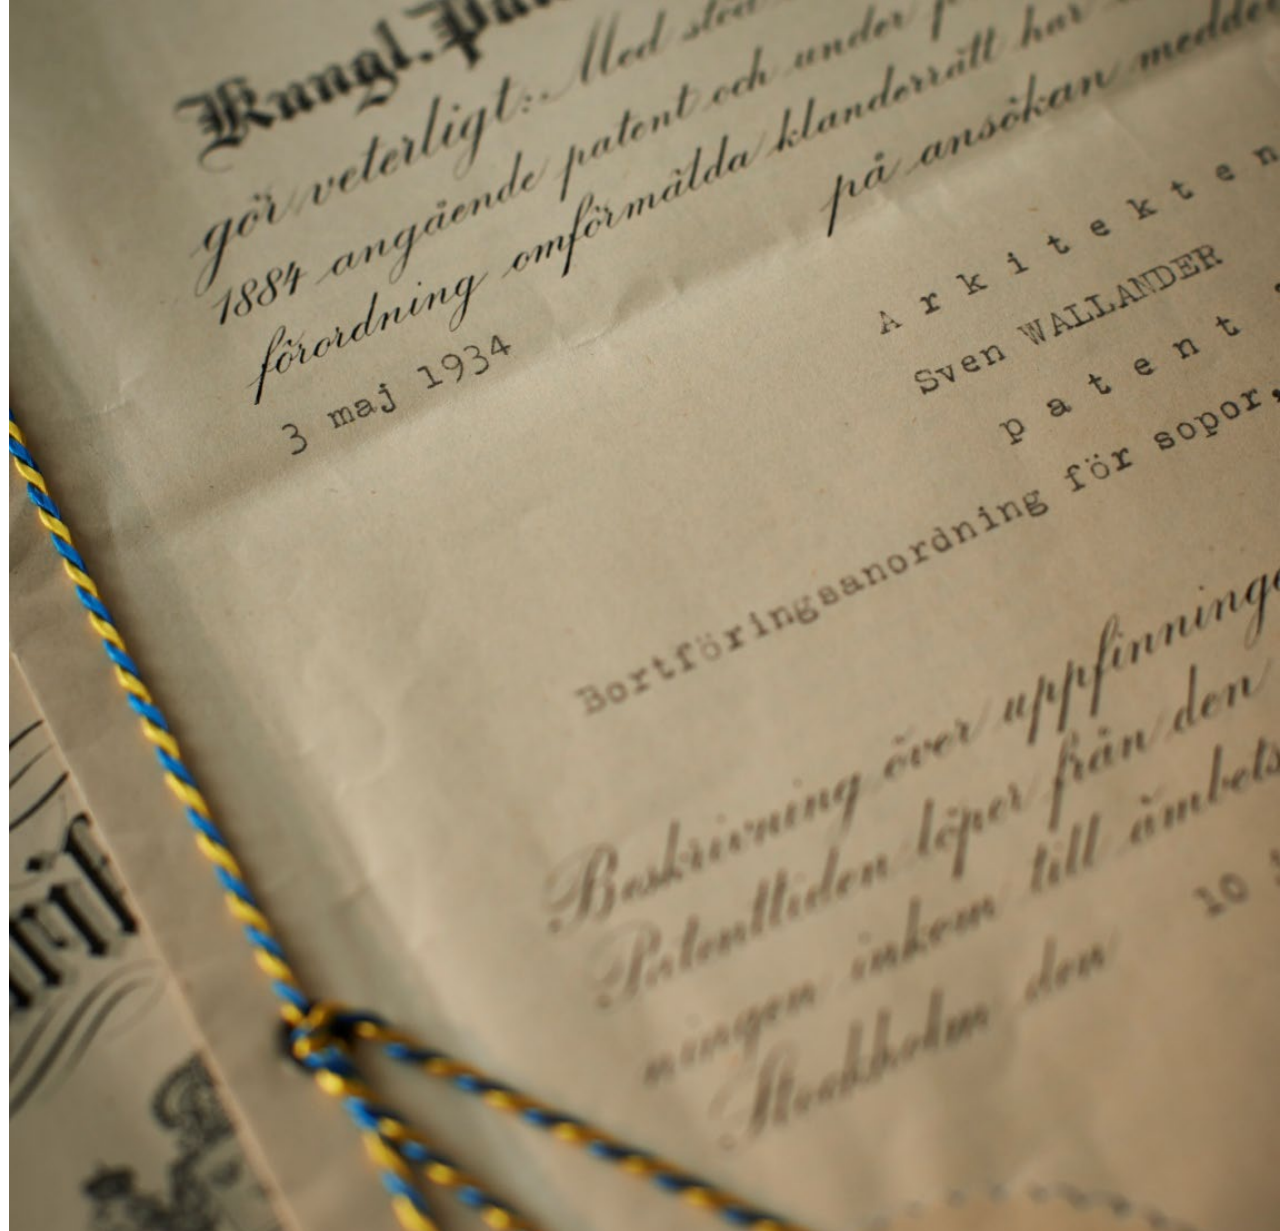 Kungl. Pa
gör veterligt: Med stöd
1884 angående patent och under
förordning omförmälda klanderrätt har
3 maj 1934 på ansökan meddel
Arkitekten
Sven WALLANDER
patent
Bortföringsanordning för sopor,
Beskrivning över uppfinninge
Patenttiden löper från den
ningen inkom till ämbets
Stockholm den 10